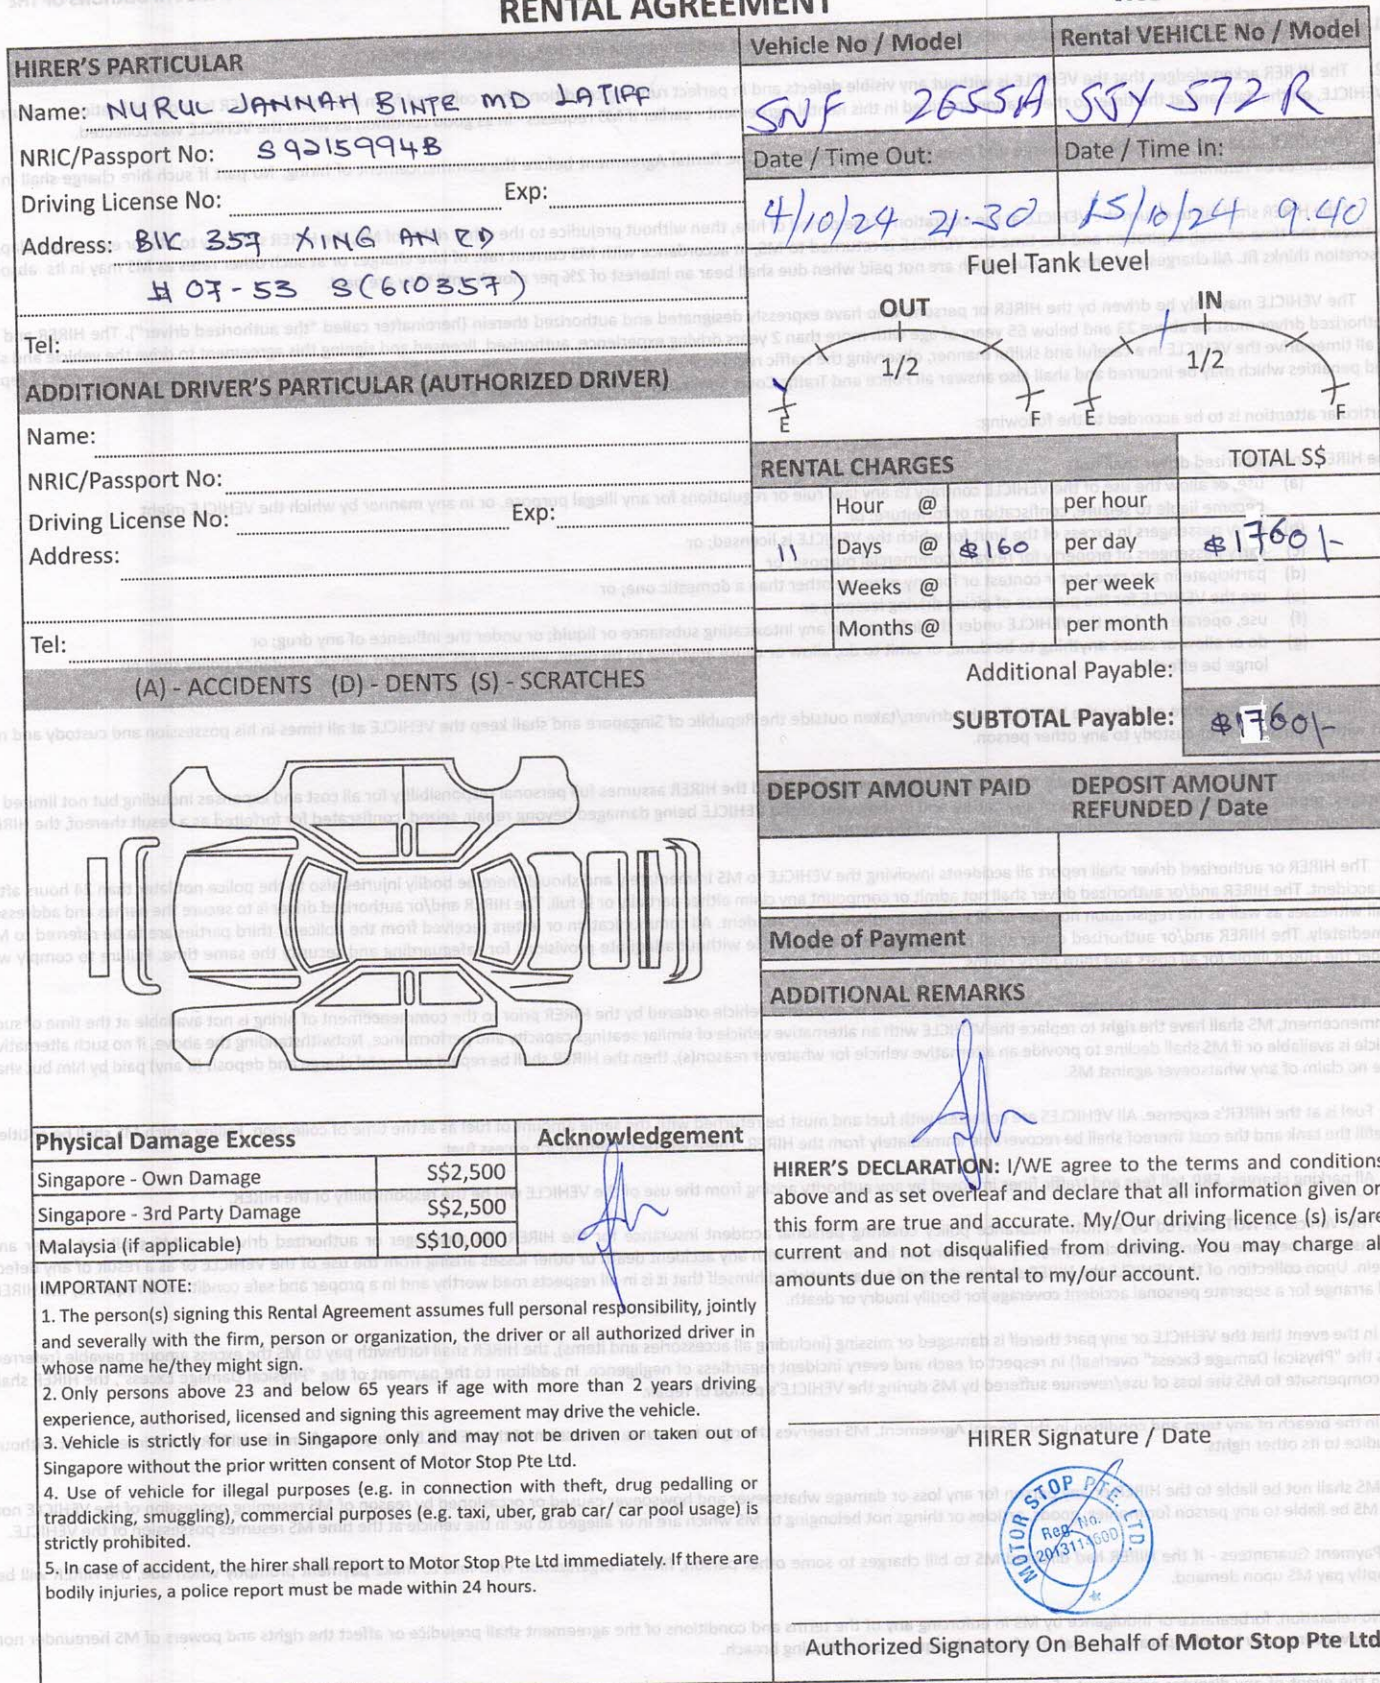 RENTAL AGREEMENT
HIRER'S PARTICULAR
Name: NURUL JANNAH BINTE MD LATIFF
NRIC/Passport No: S9215994B
Driving License No: Exp:
Address: BLK 357 XING AN RD
# 07-53 S(610357)
Tel:
Vehicle No / Model
SNF 2655A
Rental VEHICLE No / Model
SJY 572R
Date / Time Out:
4/10/24 21.30
Date / Time In:
15/10/24 9.40
Fuel Tank Level
OUT IN
1/2 1/2
E F E F
ADDITIONAL DRIVER'S PARTICULAR (AUTHORIZED DRIVER)
Name:
NRIC/Passport No:
Driving License No: Exp:
Address:
Tel:
RENTAL CHARGES TOTAL S$
Hour @ per hour
11 Days @ $160 per day $1760/-
Weeks @ per week
Months @ per month
Additional Payable:
SUBTOTAL Payable: $1760/-
(A) - ACCIDENTS (D) - DENTS (S) - SCRATCHES
DEPOSIT AMOUNT PAID
DEPOSIT AMOUNT
REFUNDED / Date
Mode of Payment
ADDITIONAL REMARKS
Physical Damage Excess Acknowledgement
Singapore - Own Damage S$2,500
Singapore - 3rd Party Damage S$2,500
Malaysia (if applicable) S$10,000
IMPORTANT NOTE:
1. The person(s) signing this Rental Agreement assumes full personal responsibility, jointly
and severally with the firm, person or organization, the driver or all authorized driver in
whose name he/they might sign.
2. Only persons above 23 and below 65 years if age with more than 2 years driving
experience, authorised, licensed and signing this agreement may drive the vehicle.
3. Vehicle is strictly for use in Singapore only and may not be driven or taken out of
Singapore without the prior written consent of Motor Stop Pte Ltd.
4. Use of vehicle for illegal purposes (e.g. in connection with theft, drug pedalling or
traddicking, smuggling), commercial purposes (e.g. taxi, uber, grab car/ car pool usage) is
strictly prohibited.
5. In case of accident, the hirer shall report to Motor Stop Pte Ltd immediately. If there are
bodily injuries, a police report must be made within 24 hours.
HIRER'S DECLARATION: I/WE agree to the terms and conditions
above and as set overleaf and declare that all information given on
this form are true and accurate. My/Our driving licence (s) is/are
current and not disqualified from driving. You may charge all
amounts due on the rental to my/our account.
HIRER Signature / Date
MOTOR STOP PTE. LTD.
Reg. No.
Authorized Signatory On Behalf of Motor Stop Pte Ltd